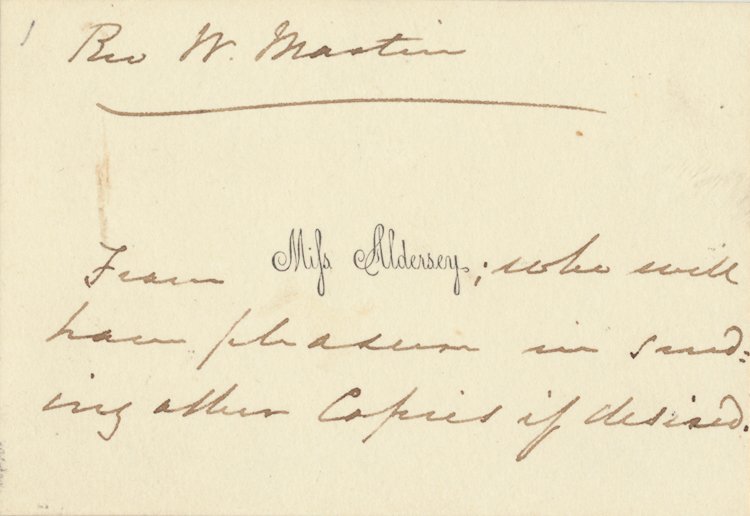 Rev W. Martin
From Miss Aldersey; who will
have pleasure in send=
ing other Copies if desired.